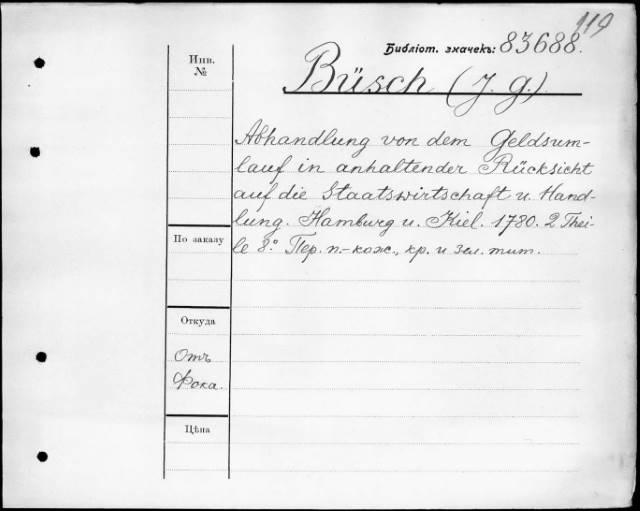 119
Библіот. значекъ: 83688.
Инв.
№
Büsch (J. G.)
Abhandlung von dem Geldsum-
lauf in anhaltender Rücksicht
auf die Staatswirtschaft u. Hand-
lung. Hamburg u. Kiel. 1780. 2 Thei-
le 8° Пер. п.-кож., кр. и зел. тит.
По заказу
Откуда
Отъ
Фока.
Цѣна